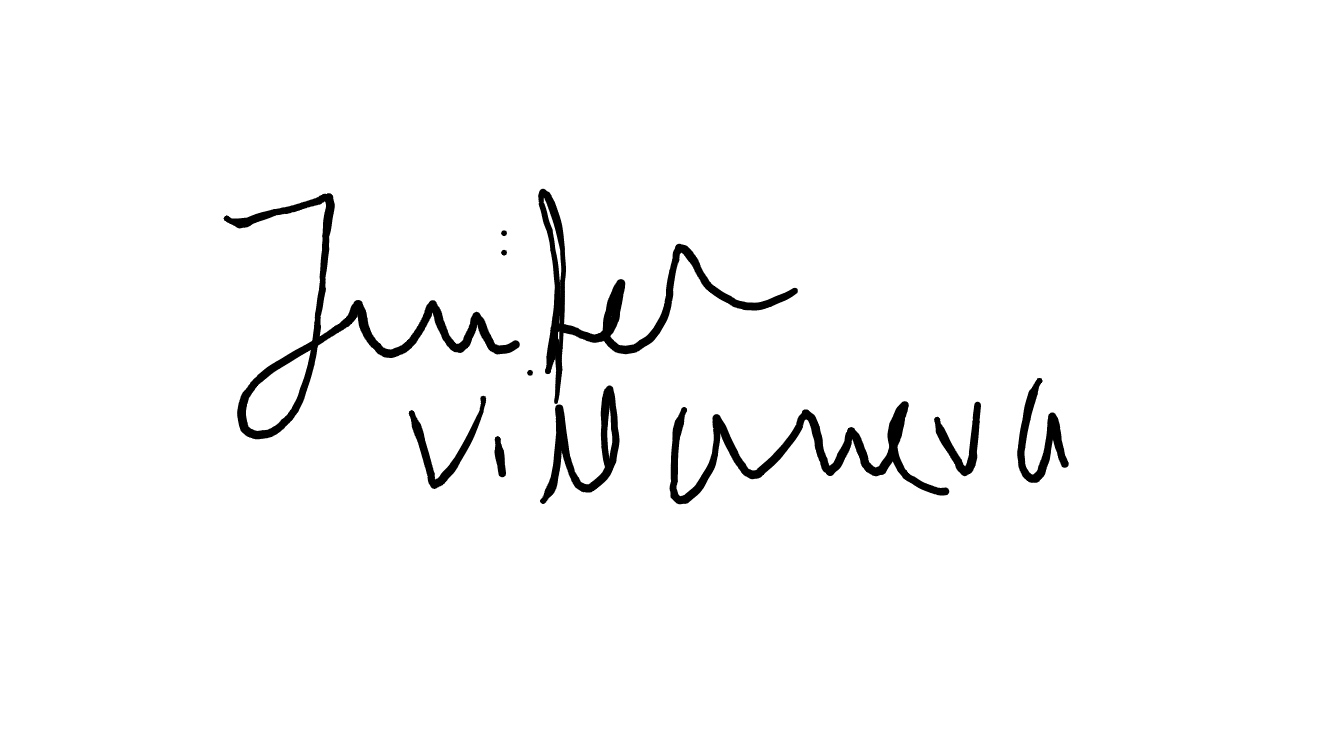 Junifer
Villanueva